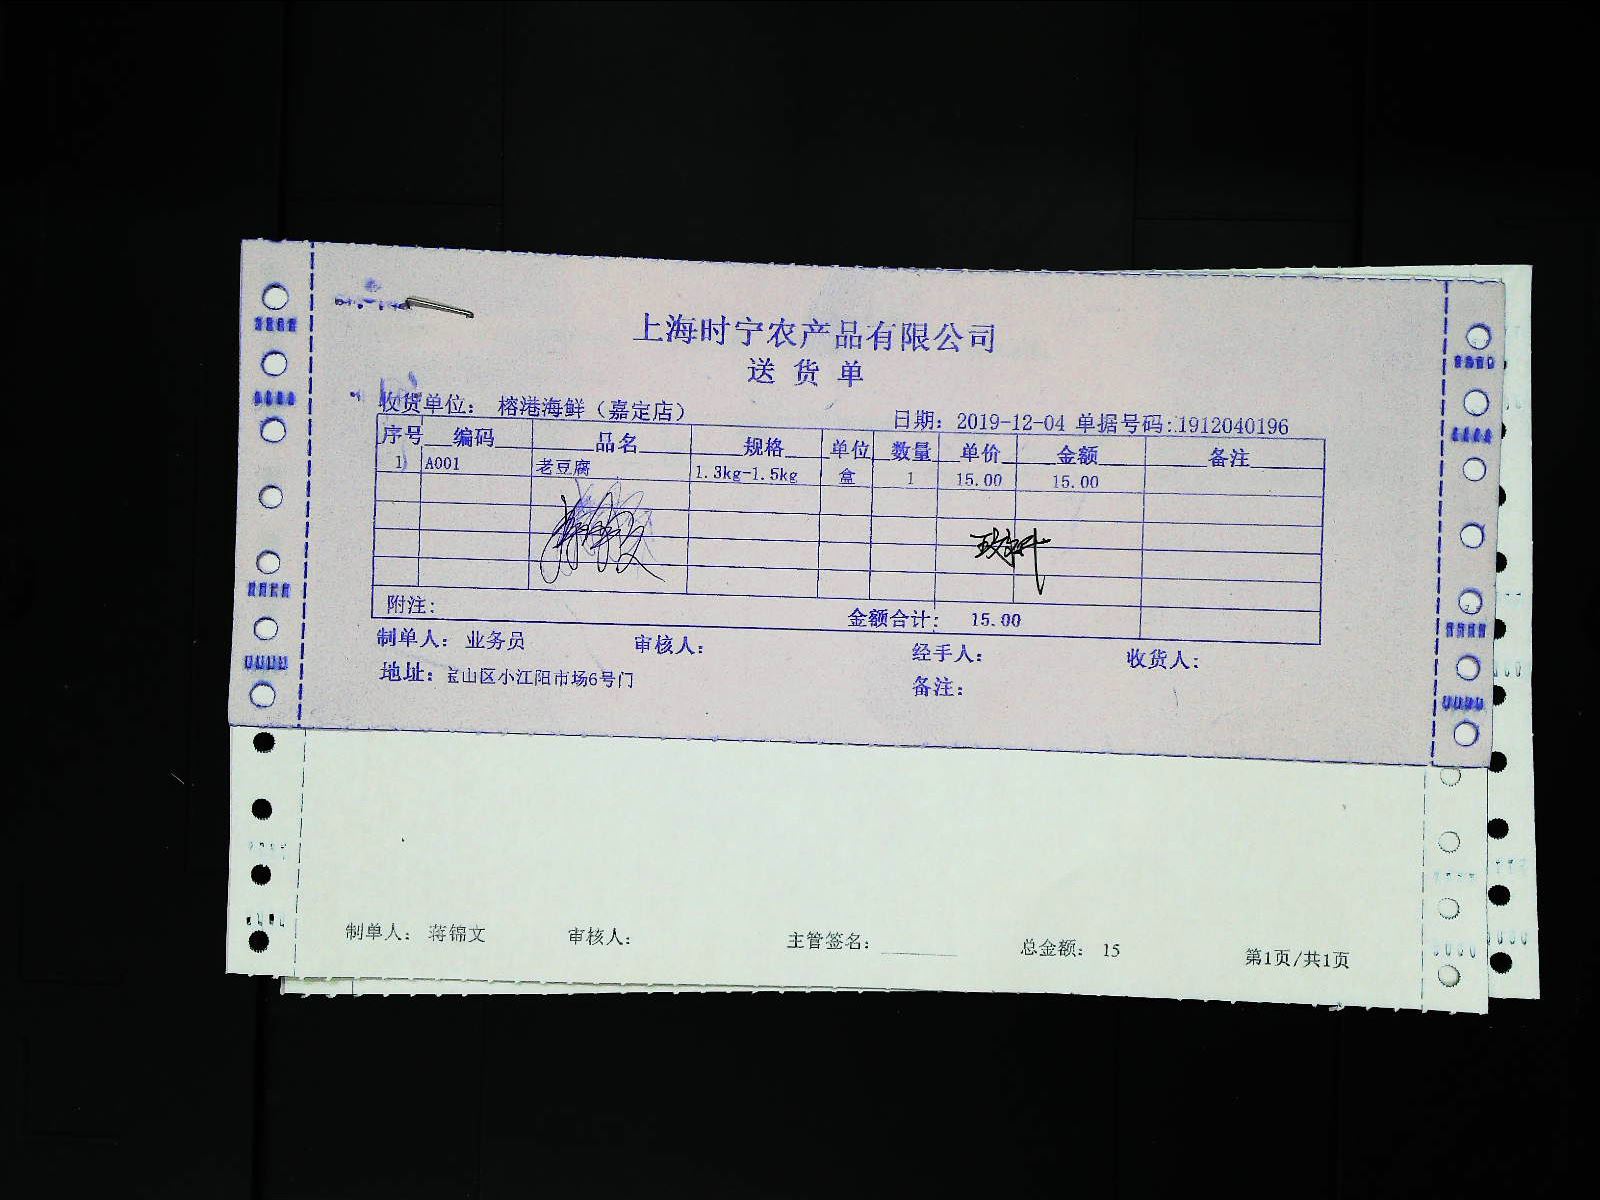 上海时宁农产品有限公司
送货单
收货单位: 榕港海鲜（嘉定店） 日期: 2019-12-04 单据号码:1912040196
序号 编码 品名 规格 单位 数量 单价 金额 备注
1 A001 老豆腐 1.3kg-1.5kg 盒 1 15.00 15.00
附注: 金额合计: 15.00
制单人: 业务员 审核人: 经手人: 收货人:
地址: 宝山区小江阳市场6号门 备注:
制单人: 蒋锦文 审核人: 主管签名: 总金额: 15 第1页/共1页